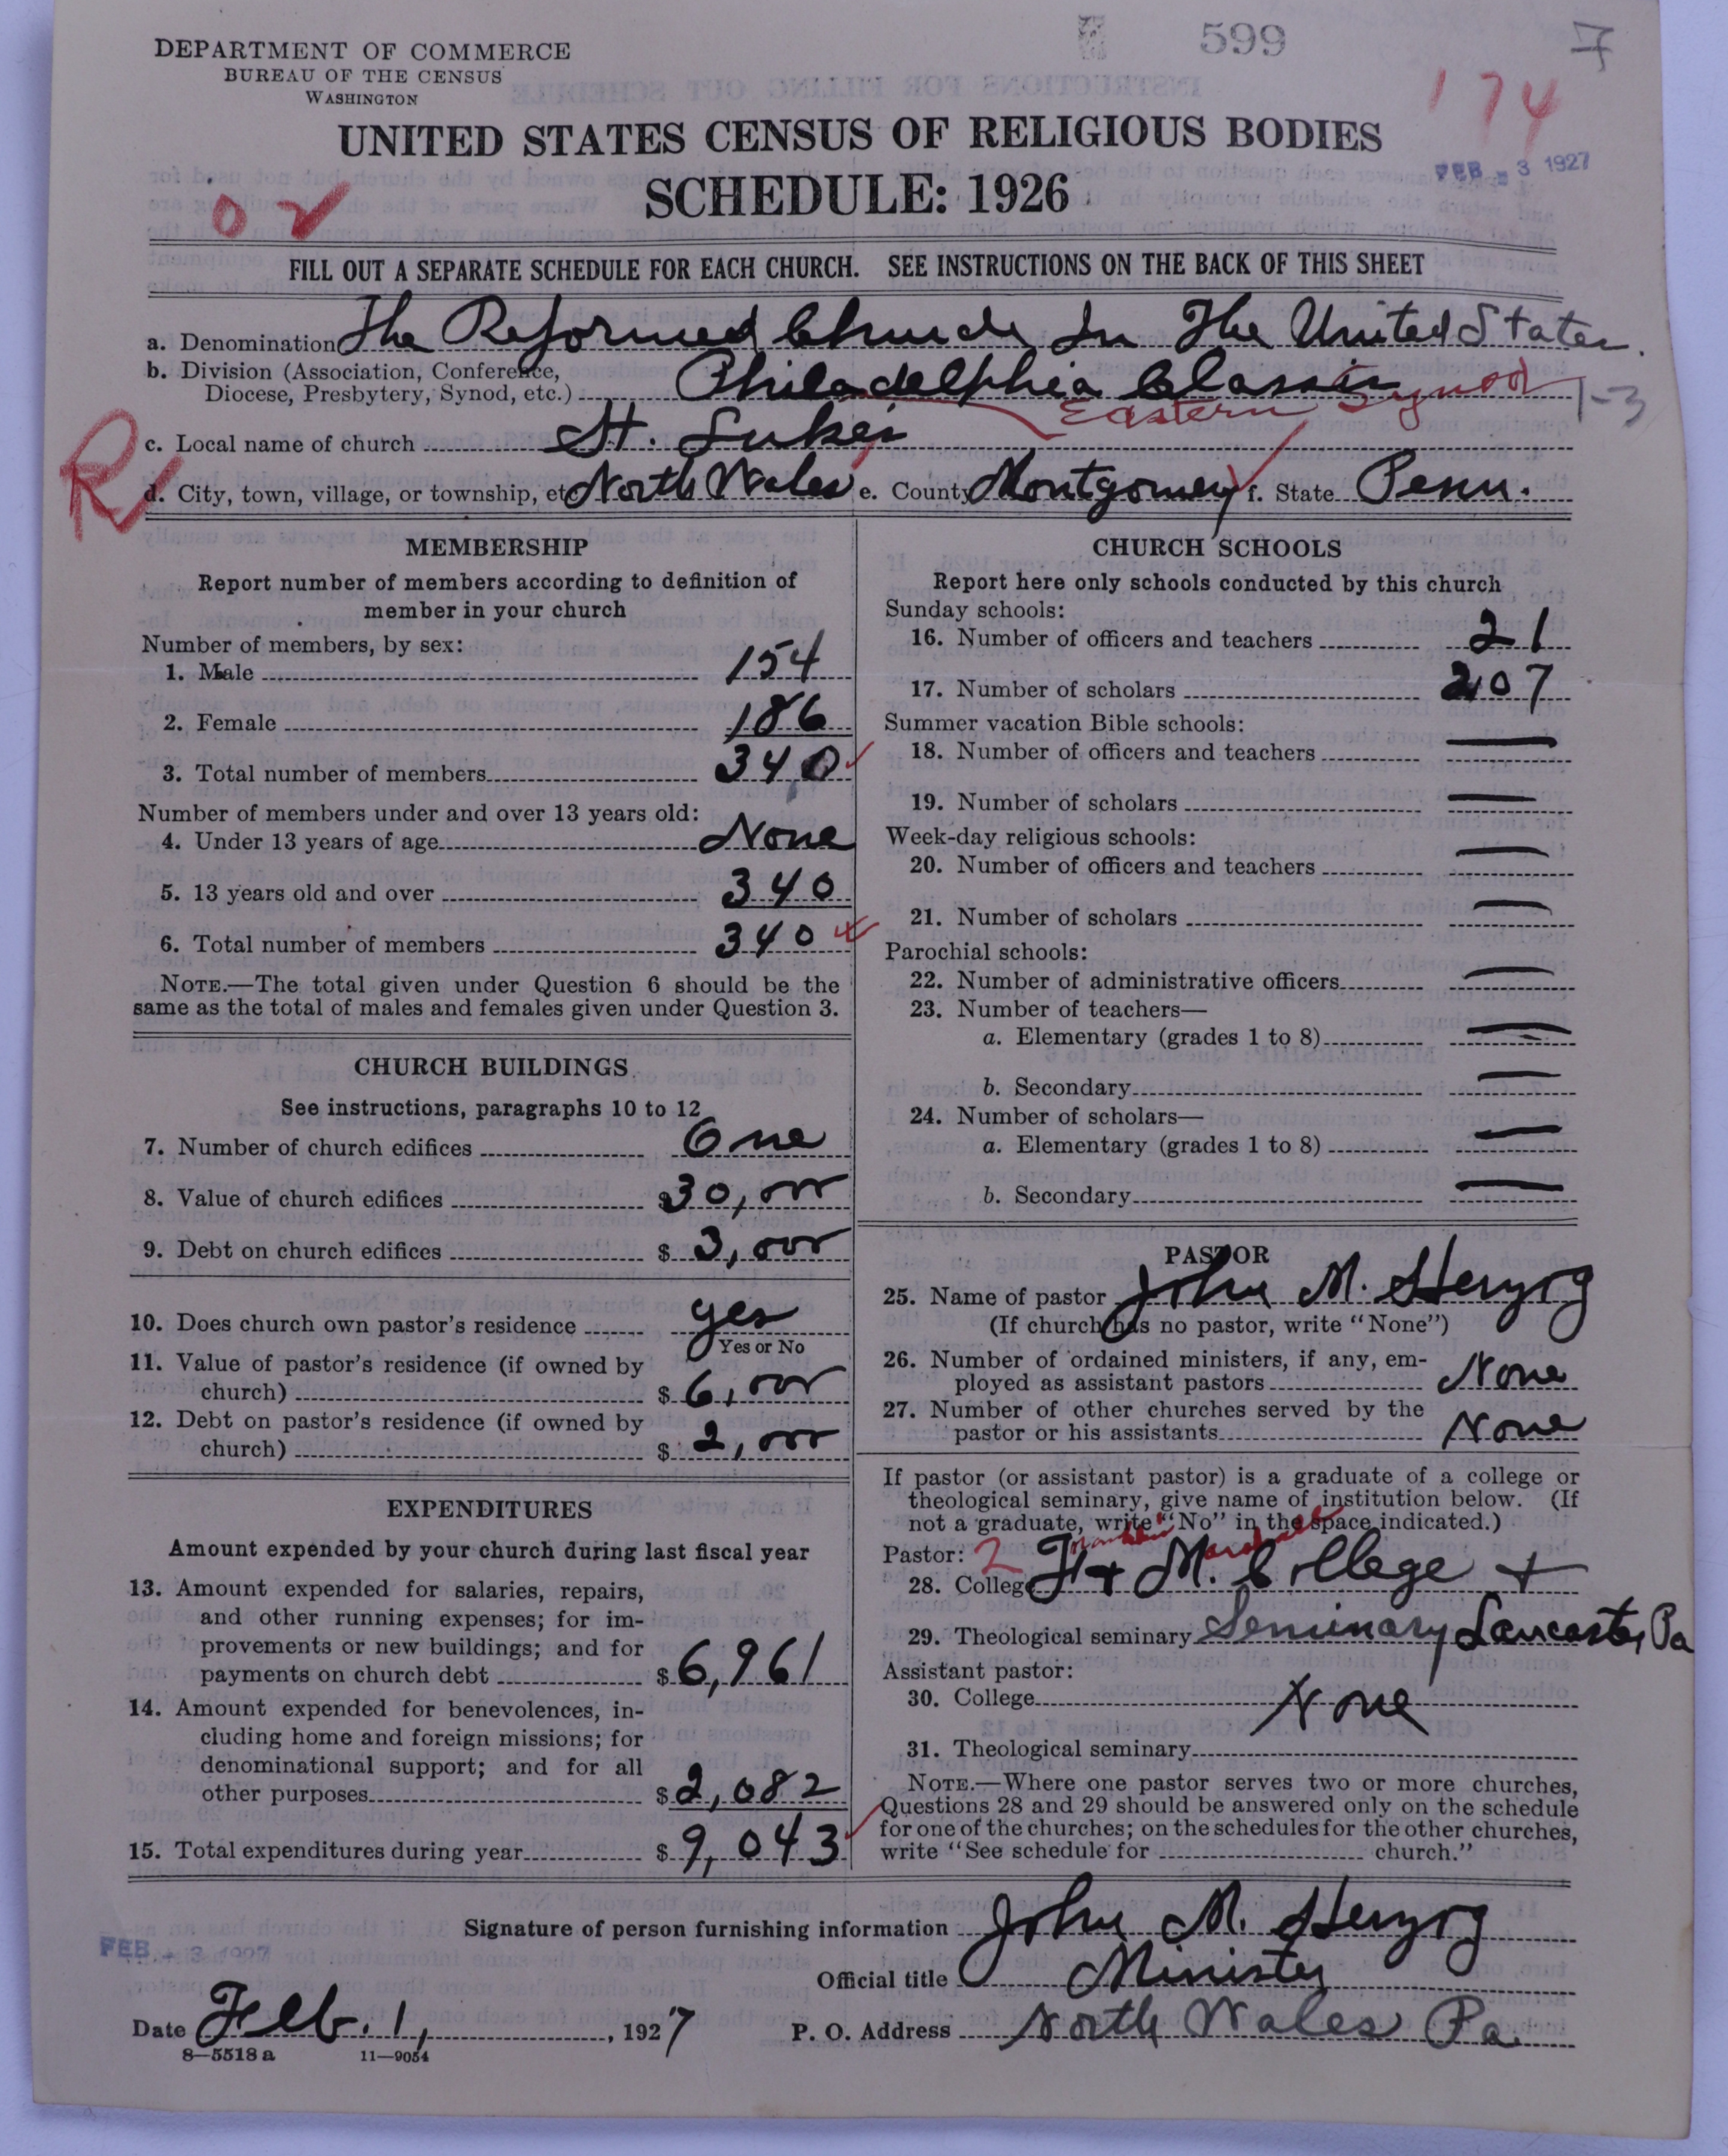 599
7
174
DEPARTMENT OF COMMERCE
BUREAU OF THE CENSUS
WASHINGTON
UNITED STATES CENSUS OF RELIGIOUS BODIES
SCHEDULE: 1926
FEB - 3 1927
FILL OUT A SEPARATE SCHEDULE FOR EACH CHURCH. SEE INSTRUCTIONS ON THE BACK OF THIS SHEET
a. Denomination The Reformed Church In The United States.
b. Division (Association, Conference,
Diocese, Presbytery, Synod, etc.) Philadelphia Classis
Eastern Synod 1-3
c. Local name of church St. Lukes
R
d. City, town, village, or township, etc North Wales e. County Montgomery f. State Penn.
MEMBERSHIP
Report number of members according to definition of
member in your church
Number of members, by sex:
1. Male 154
2. Female 186
3. Total number of members 340
Number of members under and over 13 years old:
4. Under 13 years of age None
5. 13 years old and over 340
6. Total number of members 340
NOTE.—The total given under Question 6 should be the
same as the total of males and females given under Question 3.
CHURCH BUILDINGS
See instructions, paragraphs 10 to 12
7. Number of church edifices One
8. Value of church edifices $30,000
9. Debt on church edifices $ 3,000
10. Does church own pastor's residence yes
Yes or No
11. Value of pastor's residence (if owned by
church) $ 6,000
12. Debt on pastor's residence (if owned by
church) $ 2,000
EXPENDITURES
Amount expended by your church during last fiscal year
13. Amount expended for salaries, repairs,
and other running expenses; for im-
provements or new buildings; and for
payments on church debt $ 6,961
14. Amount expended for benevolences, in-
cluding home and foreign missions; for
denominational support; and for all
other purposes $ 2,082
15. Total expenditures during year $ 9,043
CHURCH SCHOOLS
Report here only schools conducted by this church
Sunday schools:
16. Number of officers and teachers 21
17. Number of scholars 207
Summer vacation Bible schools:
18. Number of officers and teachers —
19. Number of scholars —
Week-day religious schools:
20. Number of officers and teachers —
21. Number of scholars —
Parochial schools:
22. Number of administrative officers —
23. Number of teachers—
a. Elementary (grades 1 to 8) —
b. Secondary —
24. Number of scholars—
a. Elementary (grades 1 to 8) —
b. Secondary —
PASTOR
25. Name of pastor John M. Herzog
(If church has no pastor, write "None")
26. Number of ordained ministers, if any, em-
ployed as assistant pastors None
27. Number of other churches served by the
pastor or his assistants None
If pastor (or assistant pastor) is a graduate of a college or
theological seminary, give name of institution below. (If
not a graduate, write "No" in the space indicated.)
Pastor: 2
28. College F + M. College +
29. Theological seminary Seminary Lancaster, Pa
Assistant pastor:
30. College None
31. Theological seminary
NOTE.—Where one pastor serves two or more churches,
Questions 28 and 29 should be answered only on the schedule
for one of the churches; on the schedules for the other churches,
write "See schedule for church."
Signature of person furnishing information John M. Herzog
FEB - 3 1927
Official title Minister
Date Feb. 1, , 1927
P. O. Address North Wales Pa.
8—5518 a 11—9054